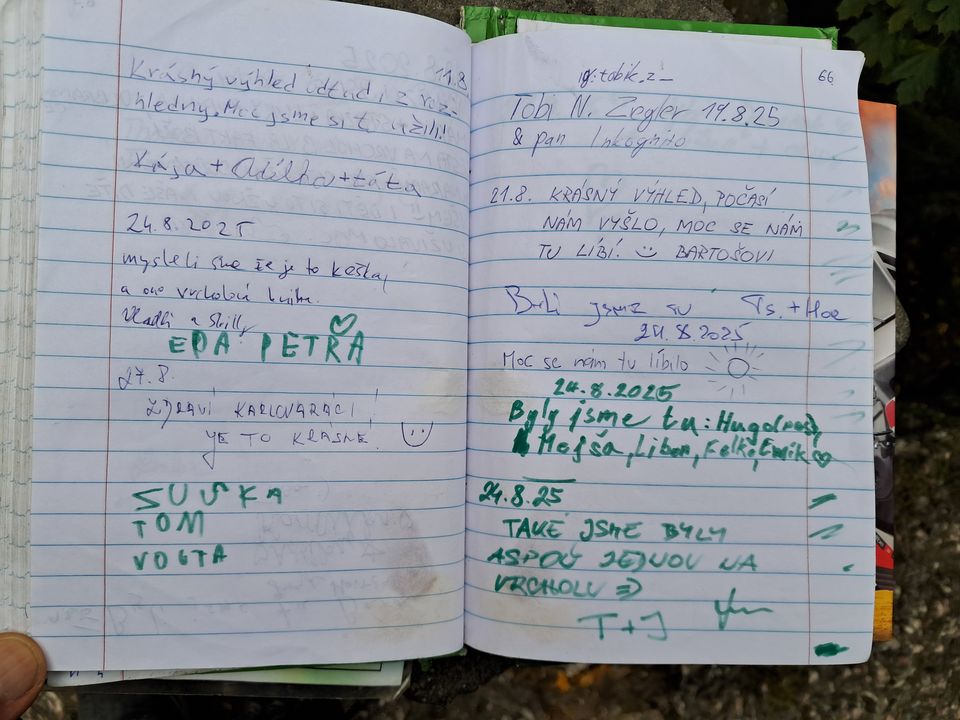 11.8
Krásný výhled odtud i z roz-
hledny. Moc jsme si to užili!
Kája + Adélka + táta
24.8.2025
mysleli sme že je to keška,
a ono vrcholová kniha.
Vladki a Skilly
EDA PETRA
27.8.
ZDRAVÍ KARLOVARÁCI!
JE TO KRÁSNÉ!
SUSKA
TOM
VOGTA
66
ig: tobik.z_
Tobi N. Zegler 19.8.25
& pan Inkognito
21.8. KRÁSNÝ VÝHLED, POČASÍ
NÁM VYŠLO, MOC SE NÁM
TU LÍBÍ! BARTOŠOVI
Byli jsme tu Ts. + Hoe
24.8.2025
Moc se nám tu líbilo
24.8.2025
Byly jsme tu: Hugo(pes),
Mejša, Libor, Felka, Emik
24.8.25
TAKÉ JSME BYLY
ASPOŇ JEDNOU NA
VRCHOLU
T + J